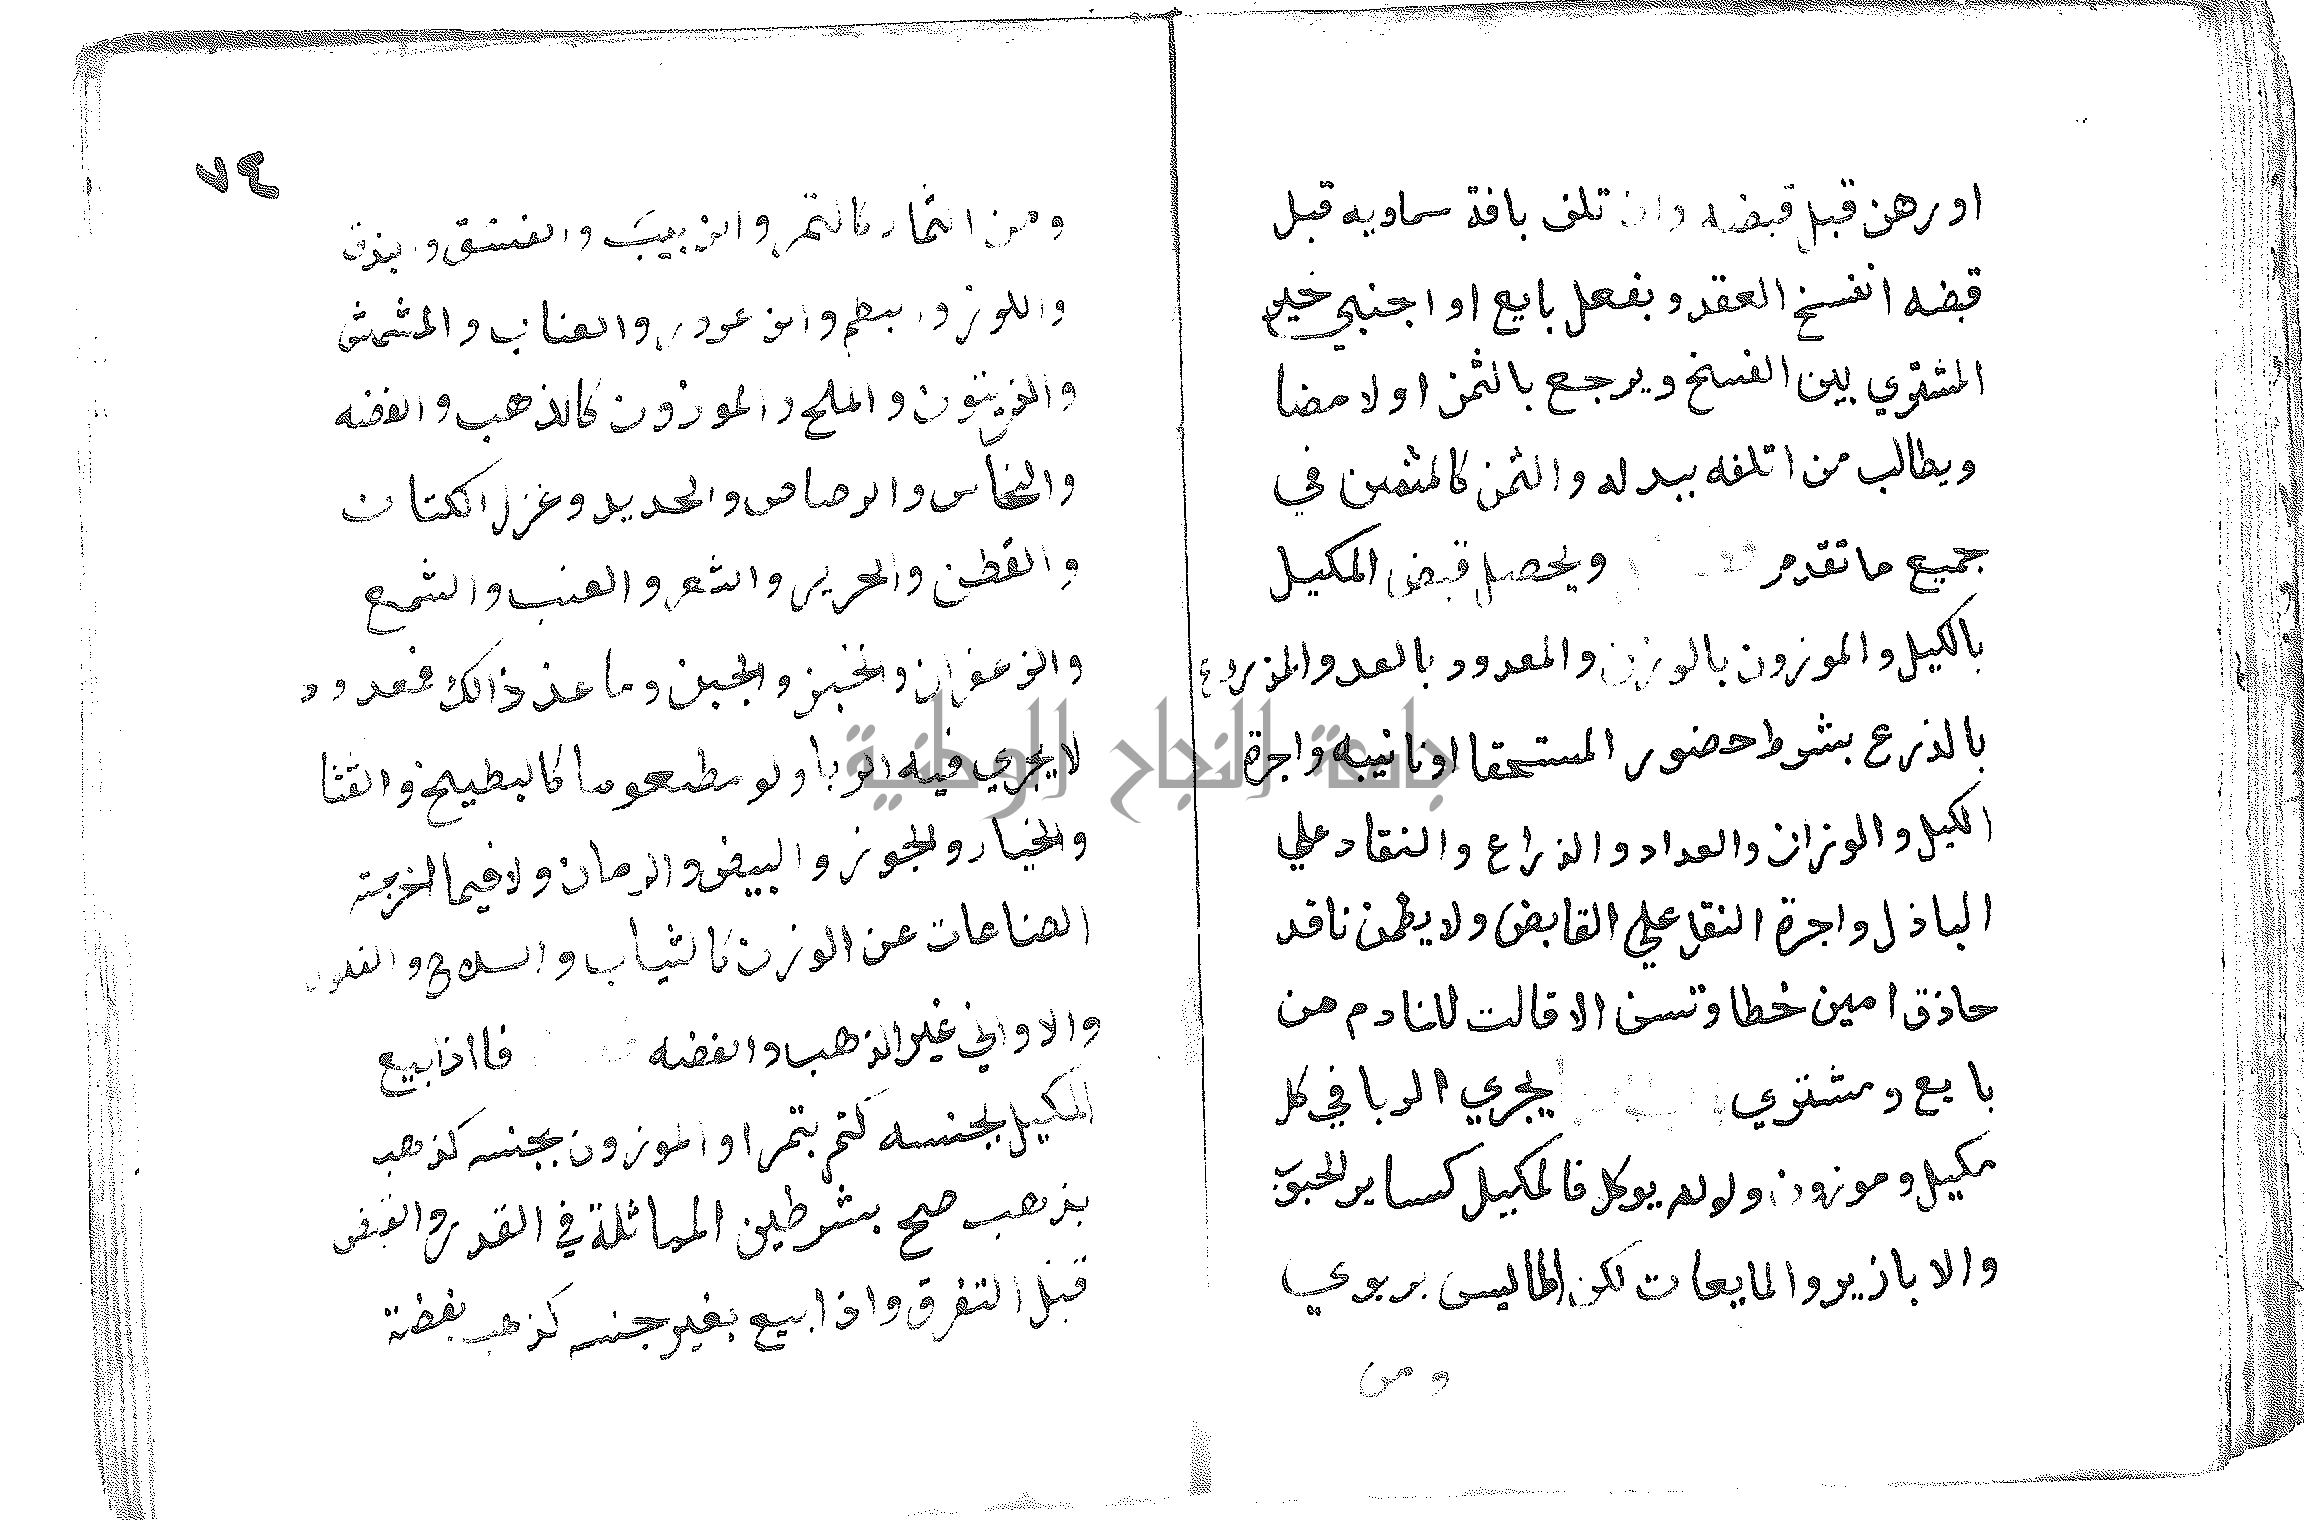 او رهن قبل قبضه وان تلف بافة سماويه قبل
قبضه انفسخ العقد وبفعل بايع او اجنبي خير
المشتري بين الفسخ ويرجع بالثمن اولا مضا
ويطالب من اتلفه ببدله والثمن كالمثمن في
جميع ما تقدم ويحصل قبض المكيل
بالكيل والموزون بالوزن والمعدود بالعد والمذروع
بالذرع بشرط حضور المستحقا او نايبه واجرة
الكيل والوزان والعداد والذراع والنقاد علي
الباذل واجرة النقل علي القابض ولا يظمن ناقد
حاذق امين خطا وتسن الاقالت للنادم من
بايع ومشتري يجري الربا في كل
مكيل وموزون ولو لم يوكل فالمكيل كساير الحبوب
والابازير والمايعات لكن الماليس بربوي
ومن
٧٤
ومن الثمار كالتمر والزبيب والفستق والبندق
واللوز والبطم والزعرور والعناب والمشمش
والزيتون والملح والموزون كالذهب والفضه
والنحاس والرصاص والحديد وغزل الكتان
والقطن والحرير والشعر والعنب والشمع
والزعفران والخبز والجبن وما عد ذالك فمعدود
لا يجري فيه الربا ولو مطعوما كالبطيخ والقثا
والخيار والجوز والبيض والرمان ولا فيما اخرجته
الصناعات عن الوزن كالثياب والسلاح والفلوس
والاواني غير الذهب والفضه فااذا بيع
المكيل بجنسه كتمر بتمر او الموزون بجنسه كذهب
بذهب صح بشرطين المماثلة في القدر والقبض
قبل التفرق واذا بيع بغير جنسه كذهب بفضة
جامعة النجاح الوطنية